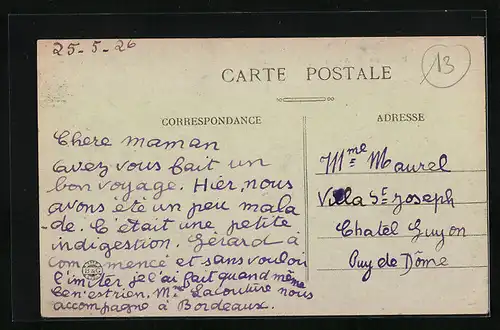 25-5-26
13
CARTE POSTALE
CORRESPONDANCE
ADRESSE
Chère maman
avez vous fait un
bon voyage. Hier, nous
avons été un peu mala
de. C'était une petite
indigestion. Gérard à
commencé et sans vouloir
l'imiter je l'ai fait quand même
Ce n'est rien. Mme Lacouture nous
accompagne à Bordeaux.
Mme Maurel
Villa St Joseph
Chatel Guyon
Puy de Dôme